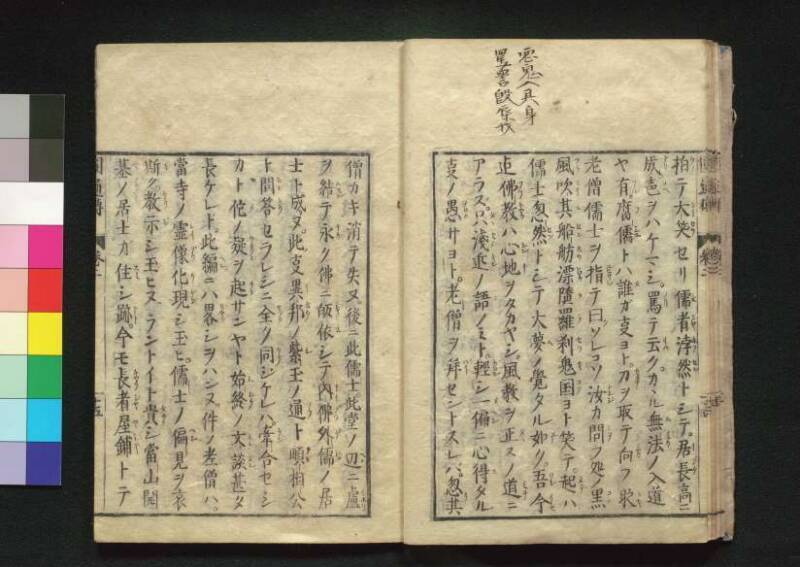 悪鬼ハ其身
拍テ大笑セリ儒者浡然トシテ居長高ニ
成色ヲハケマシ罵テ云クカヽル無法ノ入道
ヤ有腐儒トハ誰カ支ヨト刀ヲ取テ向フ
老僧儒士ヲ指テ曰ソレコソ汝カ問フ処ノ黒
風吹其船舫漂墮羅刹鬼国ヨト笑テ起ハ
儒士忽然トシテ大夢ノ覺タル如ク吾今
迠佛教ハ心地ヲタカヤシ風教ヲ正スノ道ニ
アラス只淺近ノ語ノミト輕シ一偏ニ心得タル
支ノ愚サヨト老僧ヲ拜セントスレハ忽其
僧カキ消テ失ヌ後ニ此儒士此堂ノ辺ニ盧
ヲ結テ永ク佛ニ皈依シテ内佛外儒ノ居
士ト成ヌ此支異邦ノ紫玉ノ通ト順相公
ト問答セラレシニ全ク同シケレハ牽合セシ
カト佗ノ疑ヲ起サンヤト始終ノ文談甚タ
長ケレト此編ニハ畧シヲハンヌ件ノ老僧ハ
當寺ノ靈像化現シ玉ヒ儒士ノ偏見ヲ哀
斯ク教示シ玉ヒヌラントイト貴シ當山開
基ノ居士カ住シ跡今モ長者屋鋪トテ